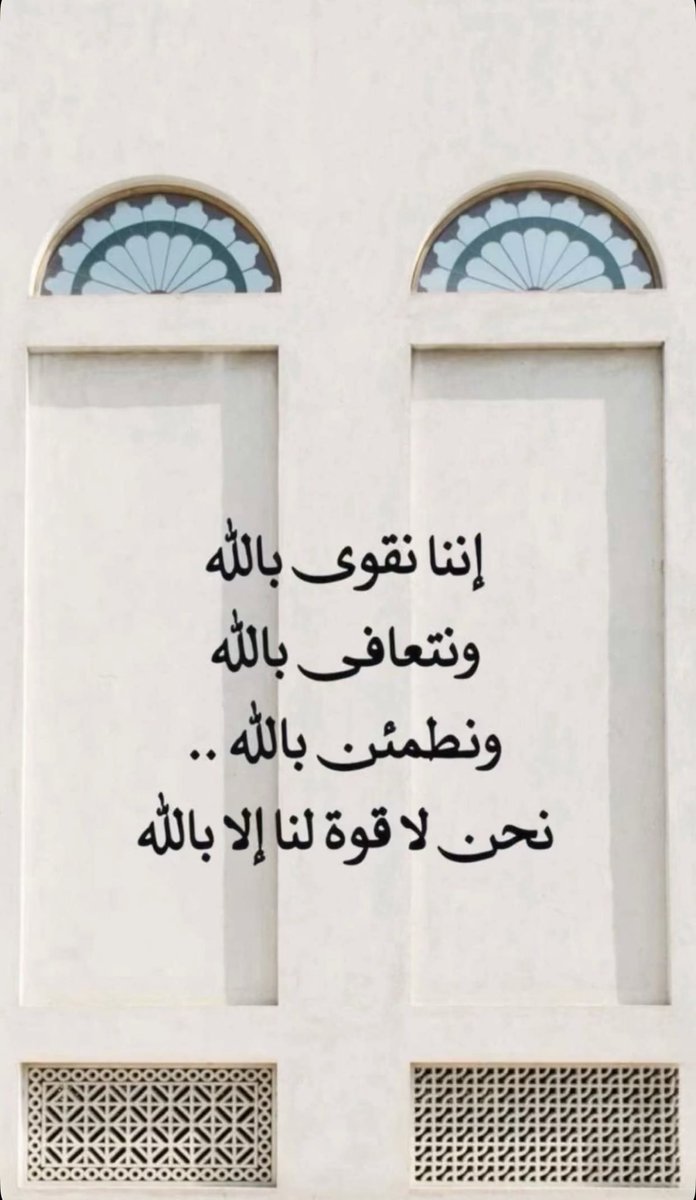 إننا نقوى بالله
ونتعافى بالله
ونطمئن بالله ..
نحن لا قوة لنا إلا بالله